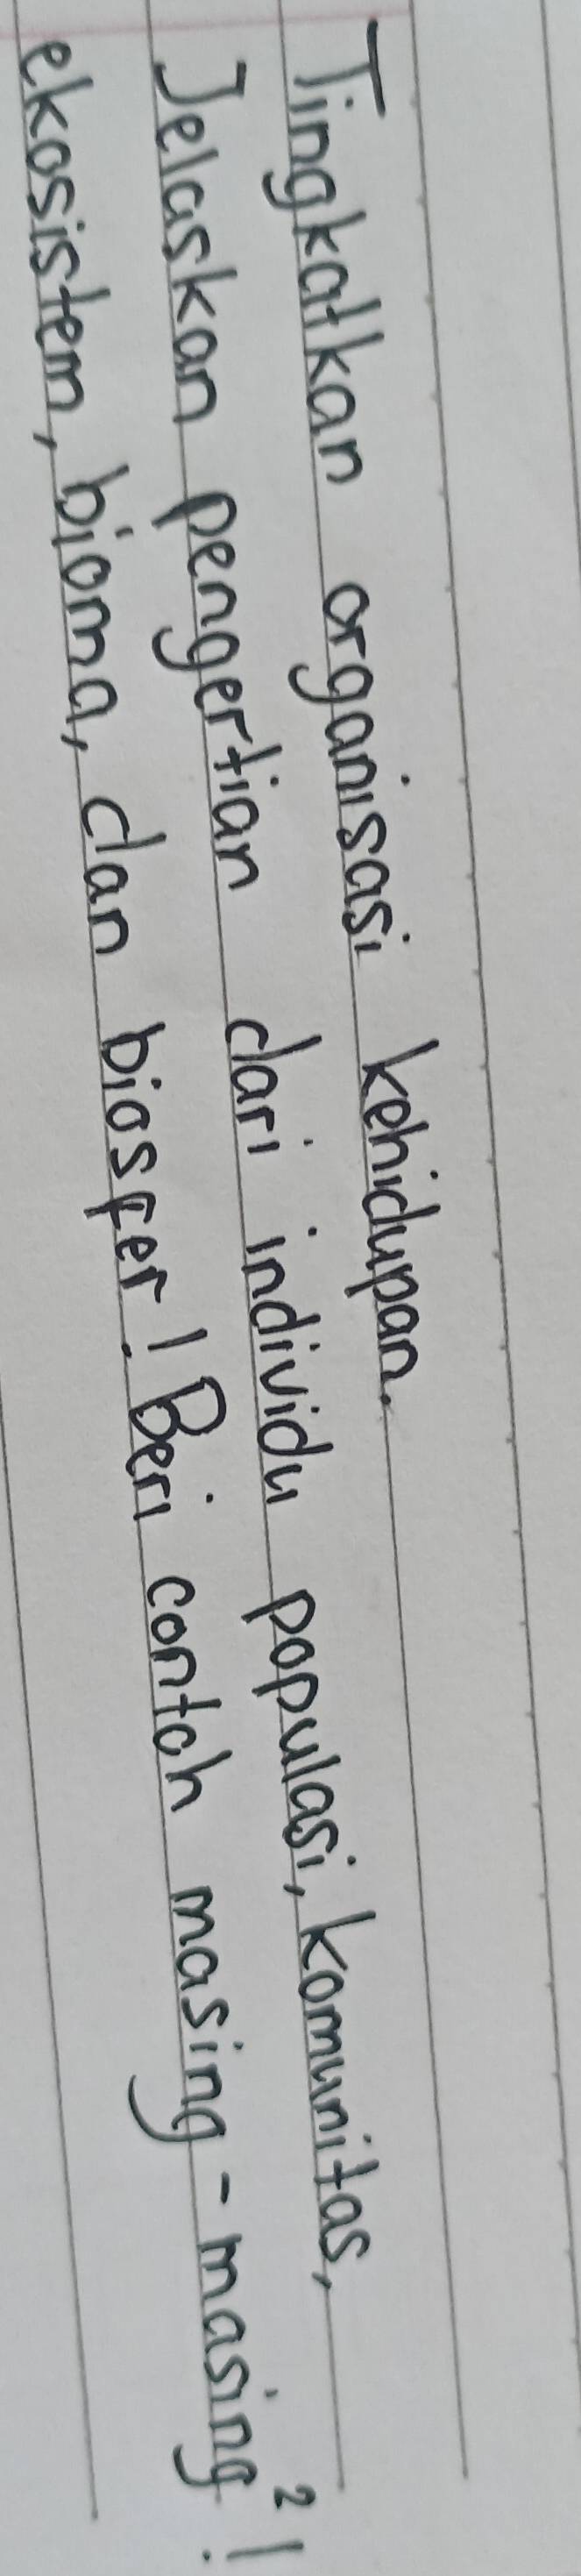 Tingkatkan organisasi kehidupan.
Jelaskan pengertian dari individu populasi, komunitas,
ekosistem, bioma, dan biosfer! Beri contoh masing-masing²!